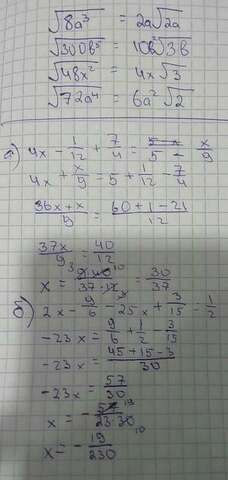 √8a³ = 2a√2a
√300b⁵ = 10b²√3b
√48x² = 4x√3
√72a⁴ = 6a²√2
а) 4x - 1/12 + 7/4 = 5 - x/9
4x + x/9 = 5 + 1/12 - 7/4
(36x + x)/9 = (60 + 1 - 21)/12
37x/9 = 40/12
= 30/37
б) 2x - 9/6 - 25x + 3/15 = 1/2
-23x = 9/6 + 1/2 - 3/15
-23x = (45 + 15 - 3)/30
-23x = 57/30
x = - 57 19/23·30 10
x = - 19/230